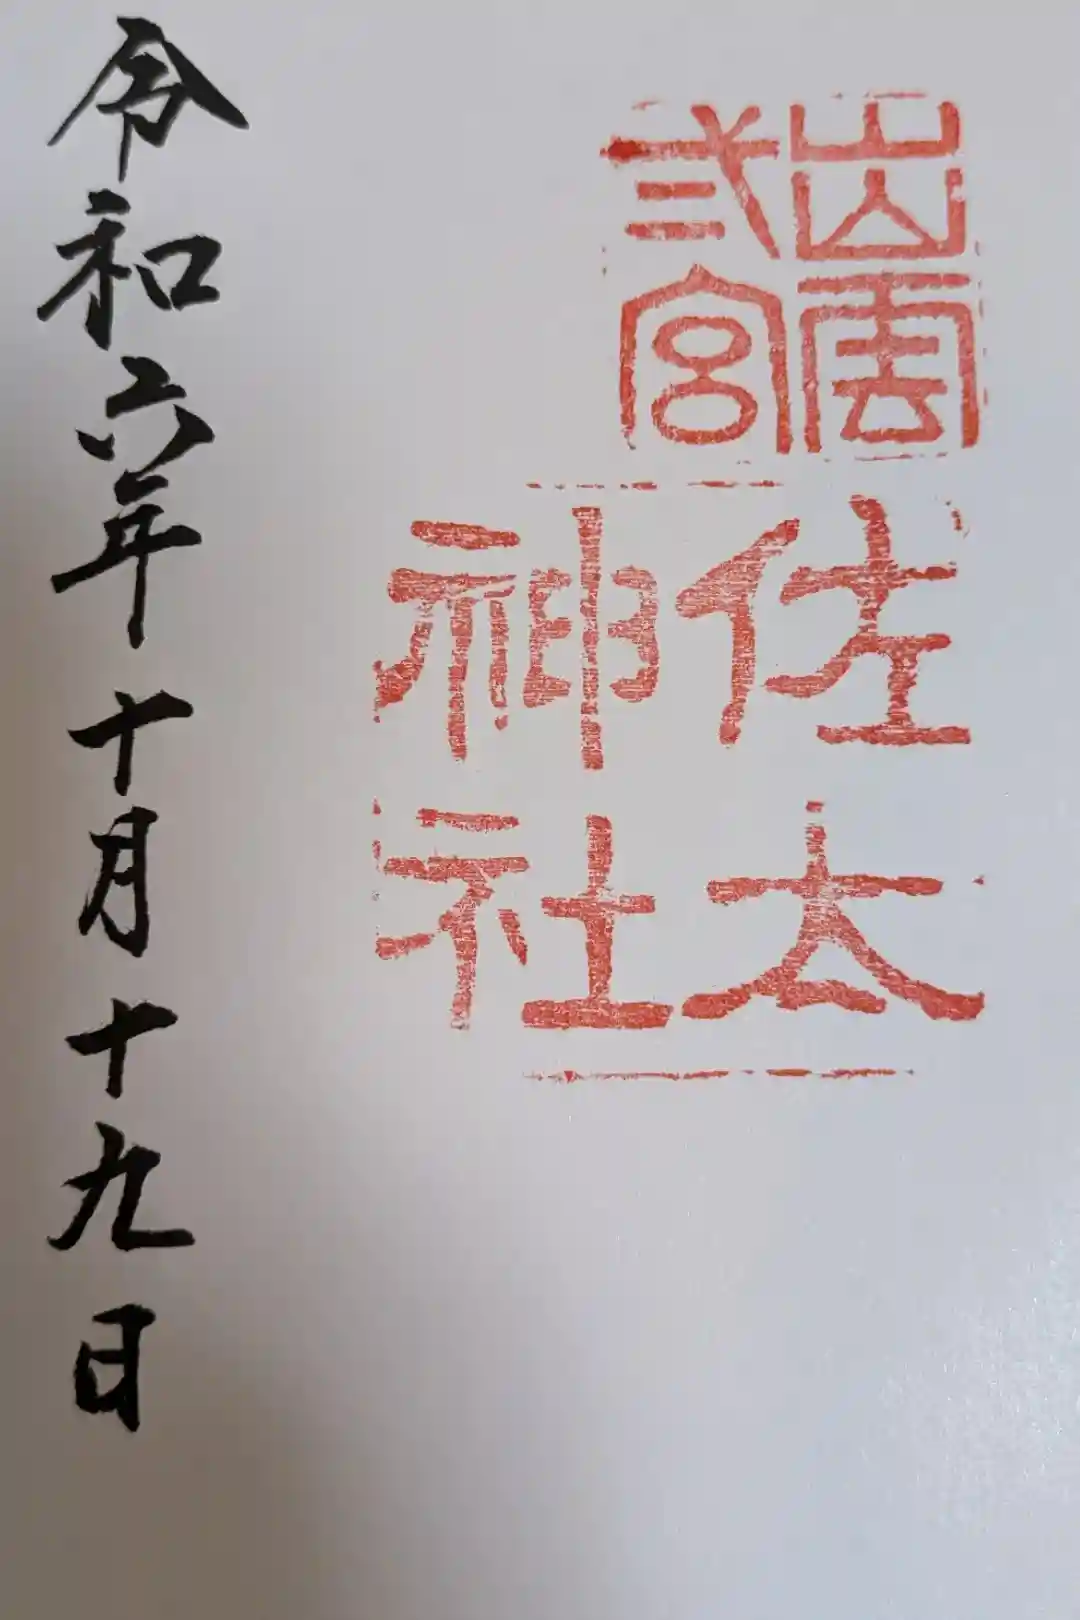 出雲
弐宮
佐太
神社
令和六年十月十九日